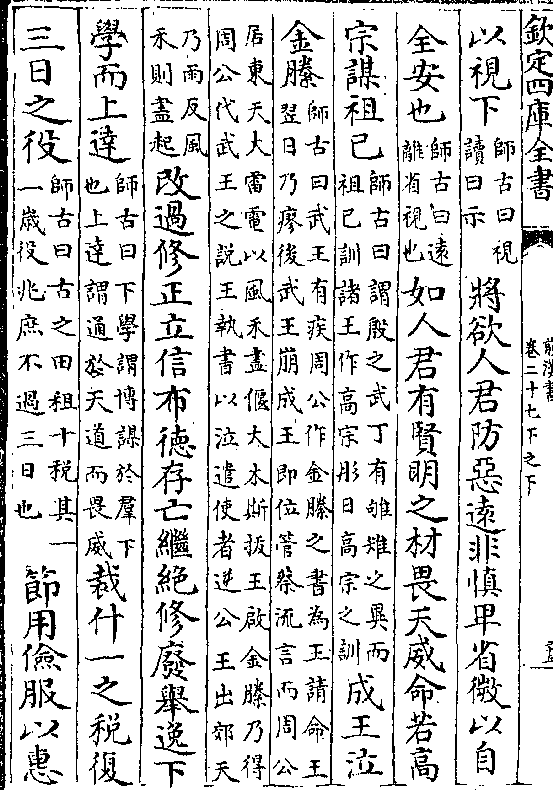 欽定四庫全書
前漢書
卷二十七下之下
以視下師古曰視讀曰示將欲人君防惡遠非慎卑省微以自
全安也師古曰遠離省視也如人君有賢明之材畏天威命若高
宗謀祖己師古曰謂殷之武丁有雊雉之異而祖己訓諸王作高宗肜日高宗之訓成王泣
金縢師古曰武王有疾周公作金縢之書為王請命王翌日乃瘳後武王崩成王即位管蔡流言而周公
居東天大雷電以風禾盡偃大木斯拔王啟金縢乃得周公代武王之說王執書以泣遣使者逆公王出郊天
乃雨反風禾則盡起改過修正立信布德存亡繼絶修廢舉逸下
學而上達師古曰下學謂博謀於羣下也上達謂通於天道而畏威裁什一之稅復
三日之役師古曰古之田租十稅其一一歳役兆庶不過三日也節用儉服以惠